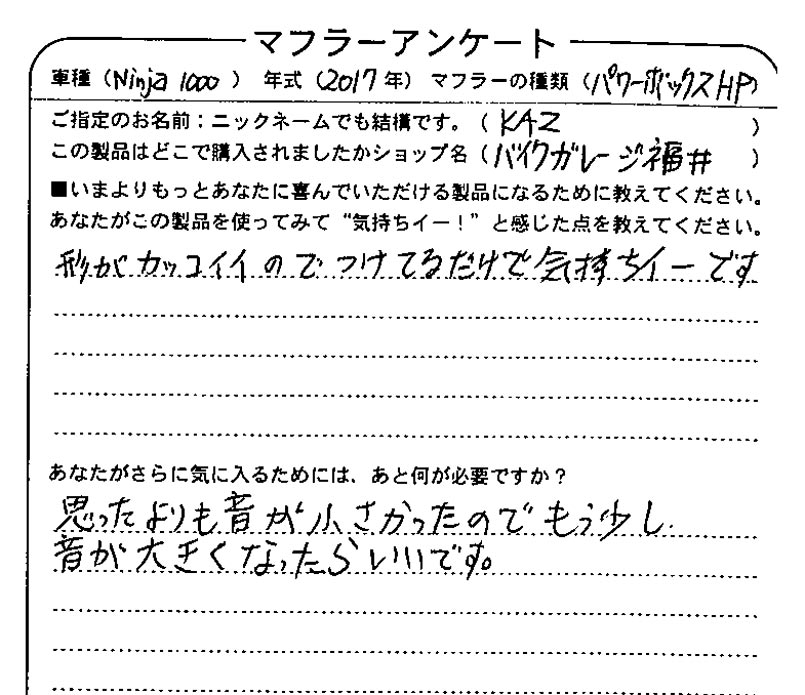 マフラーアンケート
車種（Ninja 1000）　年式（2017年）マフラーの種類（パワーボックスHP）
ご指定のお名前：ニックネームでも結構です。（KAZ）
この製品はどこで購入されましたかショップ名（バイクガレージ福井）
■いまよりもっとあなたに喜んでいただける製品になるために教えてください。
あなたがこの製品を使ってみて“気持ちイー！”と感じた点を教えてください。
形がカッコイイのでつけてるだけで気持ちイーです
あなたがさらに気に入るためには、あと何が必要ですか？
思ったよりも音が小さかったのでもう少し
音が大きくなったらいいです。